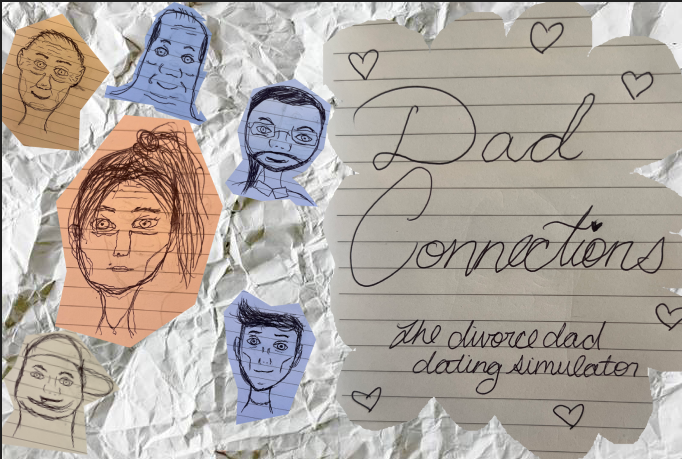 Dad
Connections
The divorce dad
dating simulator